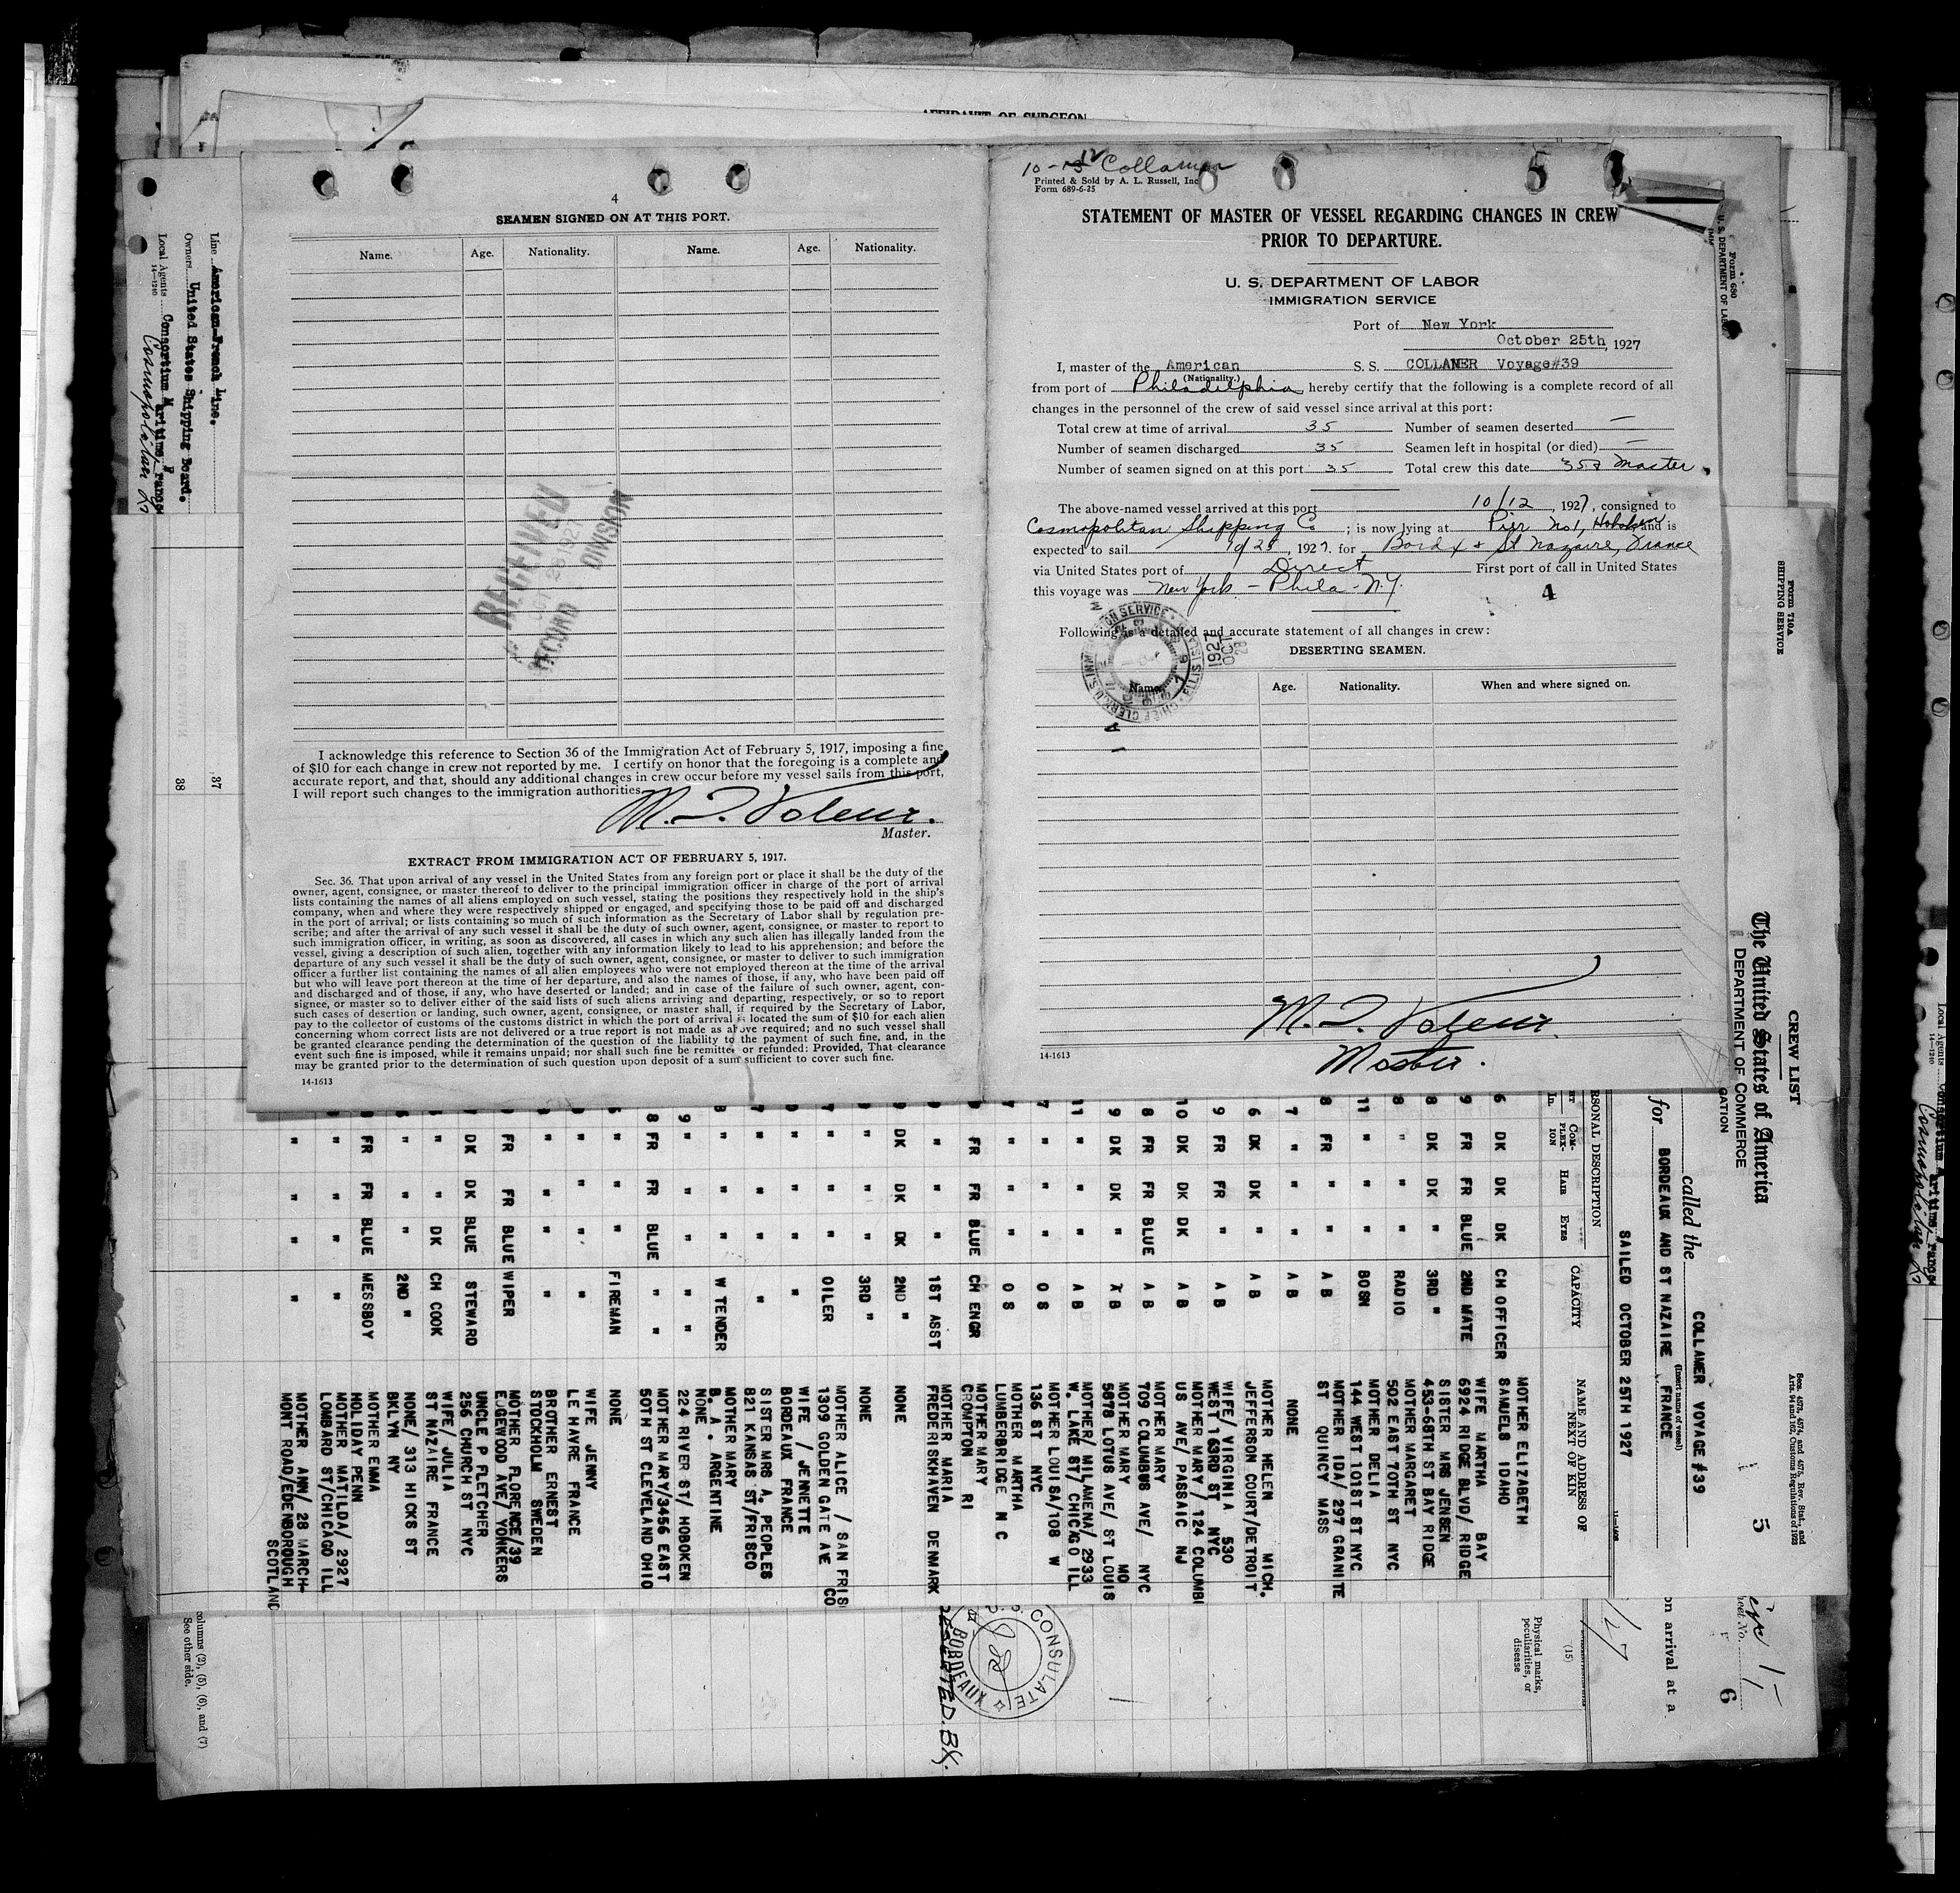 AFFIDAVIT OF SURGEON
4
SEAMEN SIGNED ON AT THIS PORT.
Name. Age. Nationality. Name. Age. Nationality.
RECEIVED
RECORD DIVISION
I acknowledge this reference to Section 36 of the Immigration Act of February 5, 1917, imposing a fine
of $10 for each change in crew not reported by me. I certify on honor that the foregoing is a complete and
accurate report, and that, should any additional changes in crew occur before my vessel sails from this port,
I will report such changes to the immigration authorities.
Master.
EXTRACT FROM IMMIGRATION ACT OF FEBRUARY 5, 1917.
Sec. 36. That upon arrival of any vessel in the United States from any foreign port or place it shall be the duty of the
owner, agent, consignee, or master thereof to deliver to the principal immigration officer in charge of the port of arrival
lists containing the names of all aliens employed on such vessel, stating the positions they respectively hold in the ship's
company, when and where they were respectively shipped or engaged, and specifying those to be paid off and discharged
in the port of arrival; or lists containing so much of such information as the Secretary of Labor shall by regulation pre-
scribe; and after the arrival of any such vessel it shall be the duty of such owner, agent, consignee, or master to report to
such immigration officer, in writing, as soon as discovered, all cases in which any such alien has illegally landed from the
vessel, giving a description of such alien, together with any information likely to lead to his apprehension; and before the
departure of any such vessel it shall be the duty of such owner, agent, consignee, or master to deliver to such immigration
officer a further list containing the names of all alien employees who were not employed thereon at the time of the arrival
but who will leave port thereon at the time of her departure, and also the names of those, if any, who have been paid off
and discharged and of those, if any, who have deserted or landed; and in case of the failure of such owner, agent, con-
signee, or master so to deliver either of the said lists of such aliens arriving and departing, respectively, or so to report
such cases of desertion or landing, such owner, agent, consignee, or master shall, if required by the Secretary of Labor,
pay to the collector of customs of the customs district in which the port of arrival is located the sum of $10 for each alien
concerning whom correct lists are not delivered or a true report is not made as above required; and no such vessel shall
be granted clearance pending the determination of the question of the liability to the payment of such fine, and, in the
event such fine is imposed, while it remains unpaid; nor shall such fine be remitted or refunded: Provided, That clearance
may be granted prior to the determination of such question upon deposit of a sum sufficient to cover such fine.
14-1613
Collamer
Printed & Sold by A. L. Russell, Inc
Form 689-6-25
5
STATEMENT OF MASTER OF VESSEL REGARDING CHANGES IN CREW
PRIOR TO DEPARTURE.
U. S. DEPARTMENT OF LABOR
IMMIGRATION SERVICE
Port of New York
October 25th, 1927
I, master of the American S. S. COLLAMER Voyage#39
(Nationality.)
from port of Philadelphia, hereby certify that the following is a complete record of all
changes in the personnel of the crew of said vessel since arrival at this port:
Total crew at time of arrival 35 Number of seamen deserted —
Number of seamen discharged 35 Seamen left in hospital (or died) —
Number of seamen signed on at this port 35 Total crew this date 35 & Master
The above-named vessel arrived at this port 10/12, 1927, consigned to
Cosmopolitan Shipping Co; is now lying at Pier No 1, Hoboken and is
expected to sail 10/25, 1927 for Bordx & St Nazaire, France
via United States port of Direct First port of call in United States
this voyage was New York - Phila - N.Y.
4
Following is a detailed and accurate statement of all changes in crew:
DESERTING SEAMEN.
Name. Age. Nationality. When and where signed on.
1927 OCT 28
Master.
14-1613
Line American-French Line.
Owners United States Shipping Board.
Local Agents Consortium Maritime Franc
14-1240
37
38
Form 680
U. S. DEPARTMENT OF LABOR
Form 710A
SHIPPING SERVICE
CREW LIST
The United States of America
DEPARTMENT OF COMMERCE
GATION
Secs. 4573, 4574, and 4575, Rev. Stat., and
Arts. 94 and 162, Customs Regulations of 1923
5
called the COLLAMER VOYAGE #39
(Insert name of vessel)
for BORDEAUX AND ST NAZAIRE FRANCE
SAILED OCTOBER 25TH 1927
RSONAL DESCRIPTION
In. COM-PLEX-ION HAIR EYES CAPACITY NAME AND ADDRESS OF NEXT OF KIN
6 DK DK DK CH OFFICER MOTHER ELIZABETH SAMUELS IDAHO
9 FR FR BLUE 2ND MATE WIFE MARTHA BAY 6924 RIDGE BLVD/ RIDGE
8 DK DK " 3RD " SISTER MRS JENSEN 453-68TH ST BAY RIDGE
8 " " " RADIO MOTHER MARGARET 502 EAST 70TH ST NYC
11 " " " BOSN MOTHER DELIA 144 WEST 101ST ST NYC
8 FR " " A B MOTHER IDA/ 297 GRANITE ST QUINCY MASS
7 " " " A B NONE
6 DK DK " A B MOTHER HELEN MICH. JEFFERSON COURT/DETROIT
9 FR FR " A B WIFE/ VIRGINIA 530 WEST 163RD ST NYC
10 DK DK DK A B MOTHER MARY/ 124 COLUMB US AVE/ PASSAIC NJ
8 FR FR BLUE A B MOTHER MARY 709 COLUMBUS AVE/ NYC
9 DK DK " A B MOTHER MARY MO 5878 LOTUS AVE/ ST LOUIS
11 " " " A B MOTHER/ MILAMENA/ 2933 W. LAKE ST/ CHICAGO ILL
7 " " " O S MOTHER LOUISA/108 W 136 ST NYC
7 " " " O S MOTHER MARTHA LUMBERBRIDGE N C
FR FR BLUE CH ENGR MOTHER MARY CROMPTON RI
" " " 1ST ASST MOTHER MARIA FREDERISKHAVEN DENMARK
9 DK DK DK 2ND " NONE
" " " 3RD " NONE
7 " " " OILER MOTHER ALICE / SAN FRIS 1309 GOLDEN GATE AVE CO
" " " " WIFE / JENNETTE BORDEAUX FRANCE
7 " " " " SISTER MRS A. PEOPLES 821 KANSAS ST/FRISCO
8 " " " W TENDER MOTHER MARY B. A . ARGENTINE
9 " " " " " NONE 224 RIVER ST/ HOBOKEN
8 FR FR BLUE " " MOTHER MARY/3456 EAST 50TH ST CLEVELAND OHIO
" " " FIREMAN NONE
" " " " WIFE JENNY LE HAVRE FRANCE
" " " " BROTHER ERNEST STOCKHOLM SWEDEN
FR FR BLUE WIPER MOTHER FLORENCE/39 EDGEWOOD AVE/ YONKERS
DK DK BLUE STEWARD UNCLE P FLETCHER 256 CHURCH ST NYC
" " DK CH COOK WIFE/ JULIA ST NAZAIRE FRANCE
" " " 2ND " NONE/ 313 HICKS ST BKLYN NY
FR FR BLUE MESSBOY MOTHER EMMA HOLIDAY PENN
" " " " MOTHER MATILDA/ 2927 LOMBARD ST/CHICAGO ILL
" " " " MOTHER ANN/ 28 MARCH- MONT ROAD/EDENBOROUGH SCOTLAND
CONSULATE
BORDEAUX
DESERTED. BX.
on arrival at a
6
(15)
Physical marks, peculiarities, or disease
columns (2), (5), (6), and (7)
See other side.